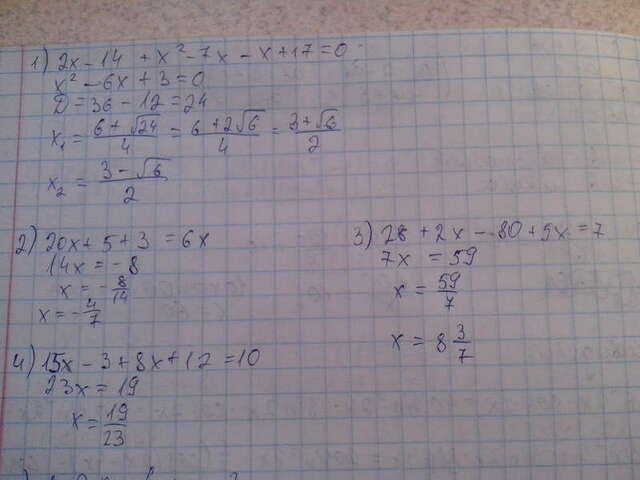 1) 2x - 14 + x² - 7x - x + 17 = 0
x² - 6x + 3 = 0
D = 36 - 12 = 24
x₁ = (6 + √24)/4 = (6 + 2√6)/4 = (3 + √6)/2
x₂ = (3 - √6)/2
2) 20x + 5 + 3 = 6x
14x = - 8
x = - 8/14
x = - 4/7
3) 28 + 2x - 80 + 5x = 7
7x = 59
x = 59/7
x = 8 3/7
4) 15x - 3 + 8x + 12 = 10
23x = 19
x = 19/23